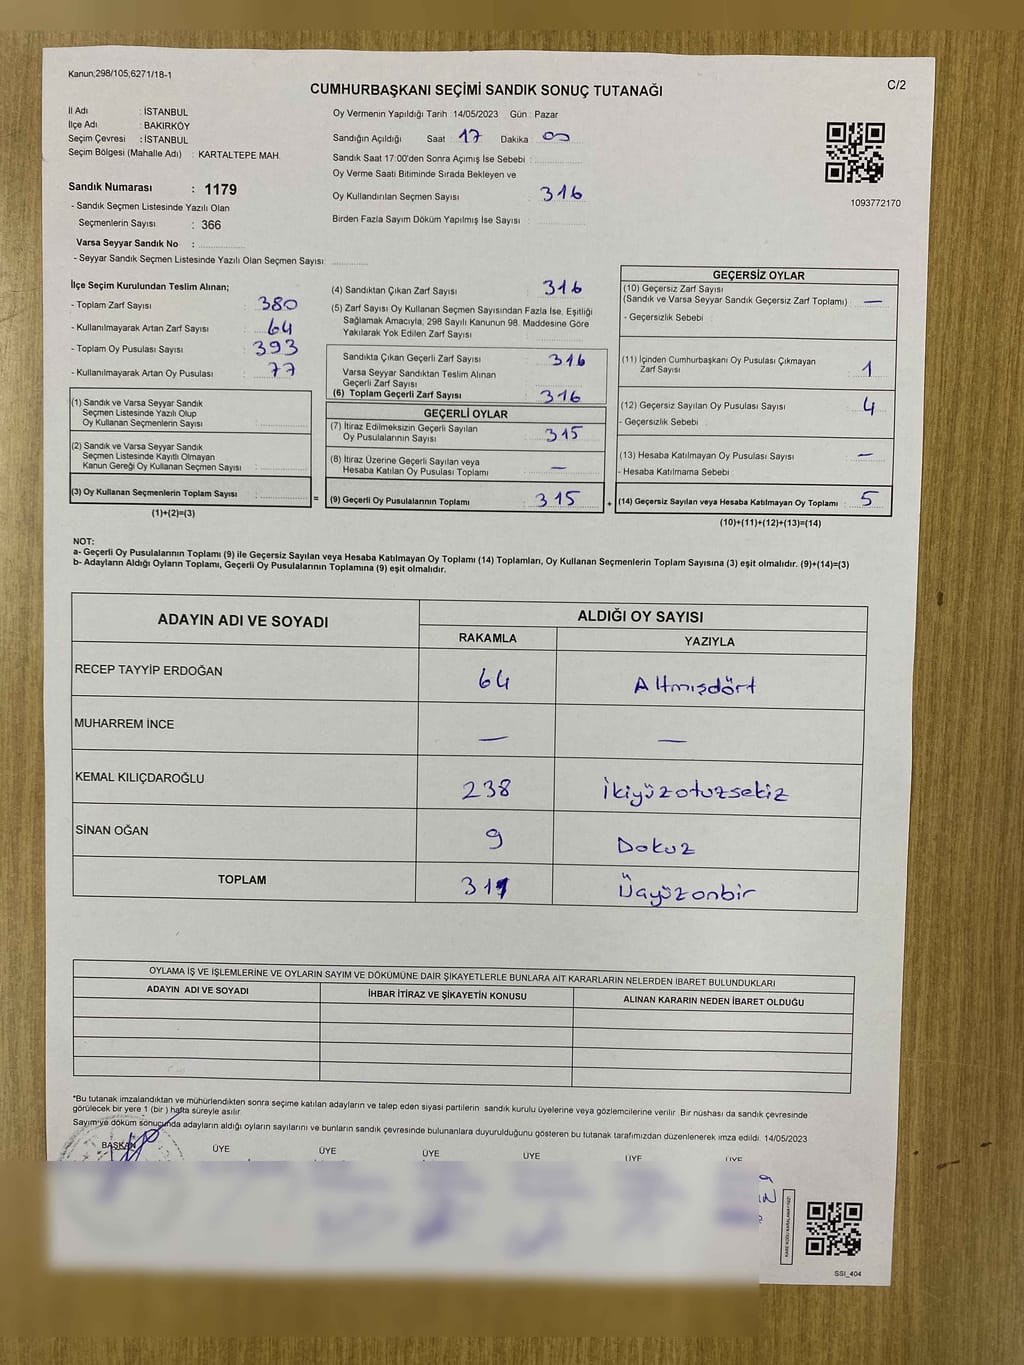 Kanun;298/105,6271/18-1
C/2
CUMHURBAŞKANI SEÇİMİ SANDIK SONUÇ TUTANAĞI
İl Adı : İSTANBUL
İlçe Adı : BAKIRKÖY
Seçim Çevresi : İSTANBUL
Seçim Bölgesi (Mahalle Adı) : KARTALTEPE MAH.
Sandık Numarası : 1179
- Sandık Seçmen Listesinde Yazılı Olan
Seçmenlerin Sayısı : 366
Varsa Seyyar Sandık No :
- Seyyar Sandık Seçmen Listesinde Yazılı Olan Seçmen Sayısı:
Oy Vermenin Yapıldığı Tarih :14/05/2023 Gün : Pazar
Sandığın Açıldığı Saat 17 Dakika 00
Sandık Saat 17:00'den Sonra Açımış İse Sebebi :
Oy Verme Saati Bitiminde Sırada Bekleyen ve
Oy Kullandırılan Seçmen Sayısı : 316
Birden Fazla Sayım Döküm Yapılmış İse Sayısı :
1093772170
İlçe Seçim Kurulundan Teslim Alınan;
- Toplam Zarf Sayısı : 380
- Kullanılmayarak Artan Zarf Sayısı : 64
- Toplam Oy Pusulası Sayısı : 393
- Kullanılmayarak Artan Oy Pusulası : 77
(1) Sandık ve Varsa Seyyar Sandık
Seçmen Listesinde Yazılı Olup
Oy Kullanan Seçmenlerin Sayısı :
(2) Sandık ve Varsa Seyyar Sandık
Seçmen Listesinde Kayıtlı Olmayan
Kanun Gereği Oy Kullanan Seçmen Sayısı :
(3) Oy Kullanan Seçmenlerin Toplam Sayısı :
(1)+(2)=(3)
(4) Sandıktan Çıkan Zarf Sayısı : 316
(5) Zarf Sayısı Oy Kullanan Seçmen Sayısından Fazla İse, Eşitliği
Sağlamak Amacıyla; 298 Sayılı Kanunun 98. Maddesine Göre
Yakılarak Yok Edilen Zarf Sayısı :
Sandıkta Çıkan Geçerli Zarf Sayısı : 316
Varsa Seyyar Sandıktan Teslim Alınan
Geçerli Zarf Sayısı :
(6) Toplam Geçerli Zarf Sayısı : 316
GEÇERLİ OYLAR
(7) İtiraz Edilmeksizin Geçerli Sayılan
Oy Pusulalarının Sayısı : 315
(8) İtiraz Üzerine Geçerli Sayılan veya
Hesaba Katılan Oy Pusulası Toplamı : —
= (9) Geçerli Oy Pusulalarının Toplamı : 315 +
GEÇERSİZ OYLAR
(10) Geçersiz Zarf Sayısı
(Sandık ve Varsa Seyyar Sandık Geçersiz Zarf Toplamı) : —
- Geçersizlik Sebebi :
(11) İçinden Cumhurbaşkanı Oy Pusulası Çıkmayan
Zarf Sayısı : 1
(12) Geçersiz Sayılan Oy Pusulası Sayısı : 4
- Geçersizlik Sebebi :
(13) Hesaba Katılmayan Oy Pusulası Sayısı : —
- Hesaba Katılmama Sebebi :
(14) Geçersiz Sayılan veya Hesaba Katılmayan Oy Toplamı : 5
(10)+(11)+(12)+(13)=(14)
NOT:
a- Geçerli Oy Pusulalarının Toplamı (9) ile Geçersiz Sayılan veya Hesaba Katılmayan Oy Toplamı (14) Toplamları, Oy Kullanan Seçmenlerin Toplam Sayısına (3) eşit olmalıdır. (9)+(14)=(3)
b- Adayların Aldığı Oyların Toplamı, Geçerli Oy Pusulalarının Toplamına (9) eşit olmalıdır.
ADAYIN ADI VE SOYADI
ALDIĞI OY SAYISI
RAKAMLA YAZIYLA
RECEP TAYYİP ERDOĞAN 64 Altmışdört
MUHARREM İNCE — —
KEMAL KILIÇDAROĞLU 238 İkiyüzotuzsekiz
SİNAN OĞAN 9 Dokuz
TOPLAM 311 Üçyüzonbir
OYLAMA İŞ VE İŞLEMLERİNE VE OYLARIN SAYIM VE DÖKÜMÜNE DAİR ŞİKAYETLERLE BUNLARA AİT KARARLARIN NELERDEN İBARET BULUNDUKLARI
ADAYIN ADI VE SOYADI İHBAR İTİRAZ VE ŞİKAYETİN KONUSU ALINAN KARARIN NEDEN İBARET OLDUĞU
*Bu tutanak imzalandıktan ve mühürlendikten sonra seçime katılan adayların ve talep eden siyasi partilerin sandık kurulu üyelerine veya gözlemcilerine verilir. Bir nüshası da sandık çevresinde
görülecek bir yere 1 (bir ) hafta süreyle asılır.
Sayım ve döküm sonucunda adayların aldığı oyların sayılarını ve bunların sandık çevresinde bulunanlara duyurulduğunu gösteren bu tutanak tarafımızdan düzenlenerek imza edildi. 14/05/2023
BAŞKAN ÜYE ÜYE ÜYE ÜYE ÜYE ÜYE
SSI_404